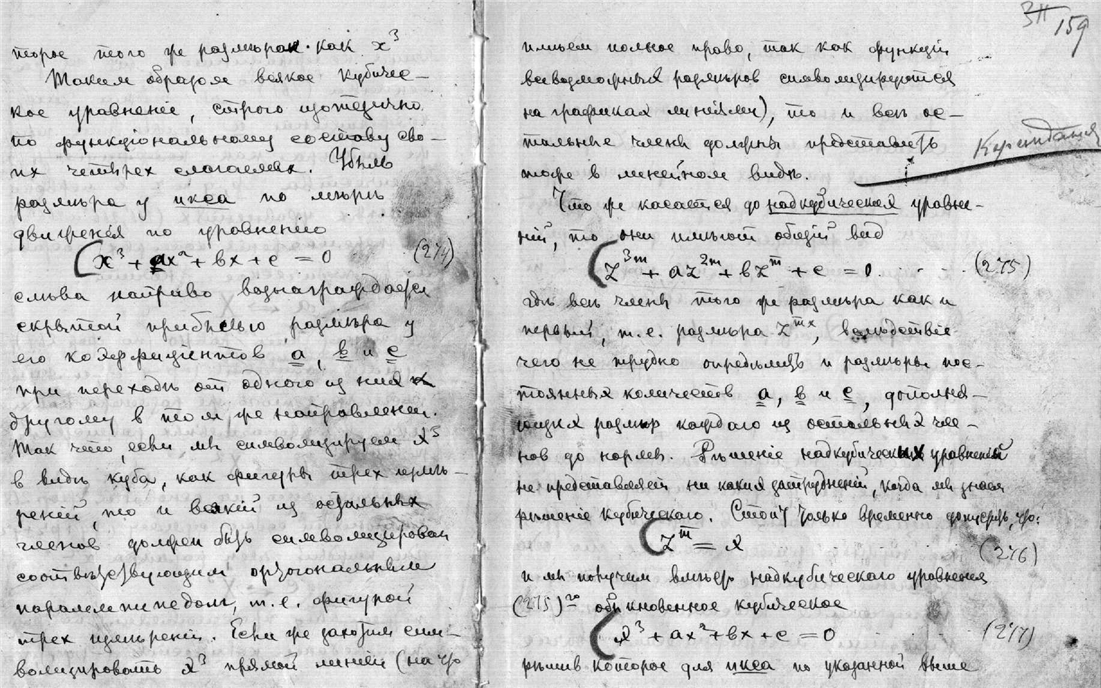 торое того же размѣра как x³
Таким образом всякое кубиче-
кое уравненіе, строго
по функціональному составу сво-
их четырех слагаемых. Убыль
размѣра у икса по мѣрѣ
движенія по уравненію
x³ + ax² + bx + c = 0 (274)
слѣва направо вознаграждается
скрытой прибылью размѣра у
его коэффиціентов a, b и c
при переходѣ от одного из них к
другому в том же направленіи.
Так что, если мы символизируем x³
в видѣ куба, как фигуры трех измѣ-
реній, то и всякій из остальных
членов должен быть символизирован
соотвѣтствующим ортогональным
паралелепипедом, т.е. фигурой
трех измѣреній. Если же захотим сим-
волизировать x³ прямой линіей (на что
159
имѣем полное право, так как функціи
всевозможных размѣров символизируются
на графиках линіями), то и всѣ ос-
тальные члены должны представлять
тоже в линейном видѣ.
Что же касается до надкубических уравне-
ній, то они имѣют общій вид
z³ᵐ + az²ᵐ + bzᵐ + c = 0 (275)
гдѣ всѣ члены того же размѣра как и
первый, т.е. размѣра вслѣдствіе
чего не трудно опредѣлить и размѣры пос-
тоянных количеств a, b и c, дополня-
ющих размѣр каждаго из остальных чле-
нов до нормы. Рѣшеніе надкубических уравненій
не представляет ни каких затрудненій, когда мы знаем
рѣшеніе кубическаго. Стоит только временно допустить, что:
zᵐ = x (276)
и мы получим вмѣсто надкубическаго уравненія
(275)го обыкновенное кубическое
x³ + ax² + bx + c = 0 (277)
рѣшив которое для икса по указанной выше